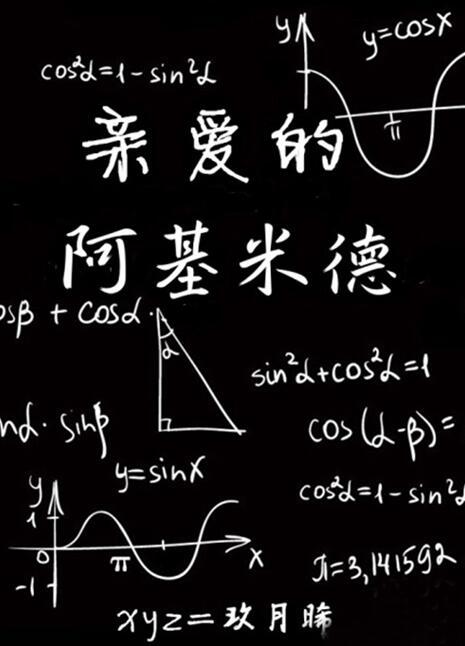 y
y=cosx
cos²α=1-sin²α
π
亲爱的
阿基米德
osβ + cosα·
α
sin²α+cos²α=1
nα·sinβ
cos(α-β)=
y=sinx
y
cos²α=1-sin²α
1
0
π
x
-1
π=3,141592
xyz=玖月晞